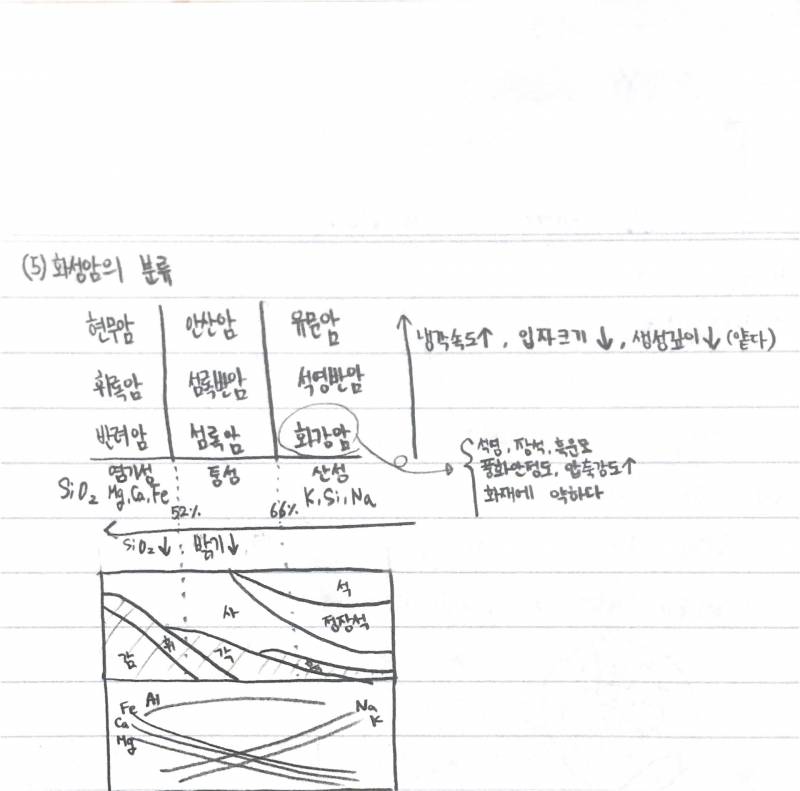 (5) 화성암의 분류
현무암 안산암 유문암
냉각속도↑, 입자크기↓, 생성깊이↓(얕다)
휘록암 섬록반암 석영반암
반려암 섬록암 화강암
석영, 장석, 흑운모
풍화안정도, 압축강도↑
화재에 약하다
염기성 중성 산성
SiO₂ Mg, Ca, Fe K, Si, Na
52% 66%
SiO₂↓ 밝기↓
석
사 정장석
감 휘 각
Fe Al Na
Ca K
Mg